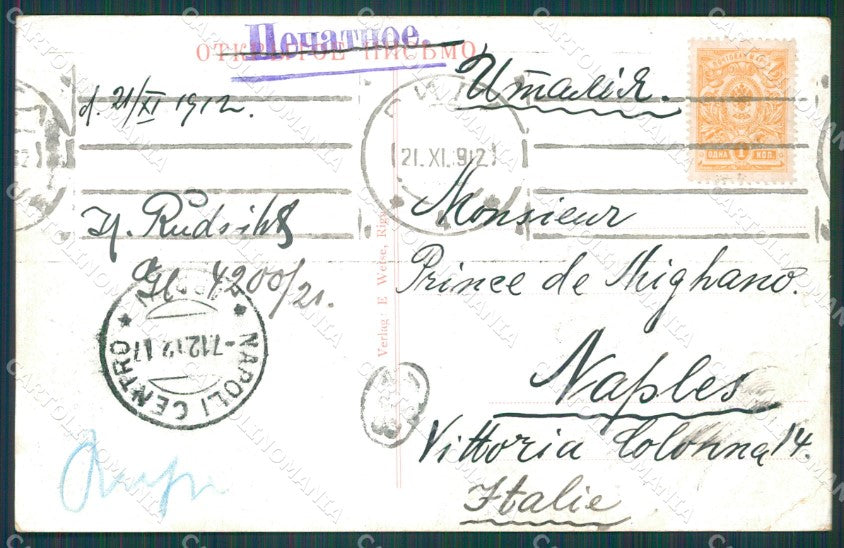 Печатное.
ОТКРЫТОЕ ПИСЬМО
Италія.
d. 21/XI 1912.
21.XI.912
ОДНА 1 КОП.
Monsieur
Prince de Mighano.
Naples
Vittoria Colonna 14.
Italie
4200/21.
NAPOLI CENTRO
-7.12.12 17
Verlag: E Weise, Riga
CARTOLINOMANIA